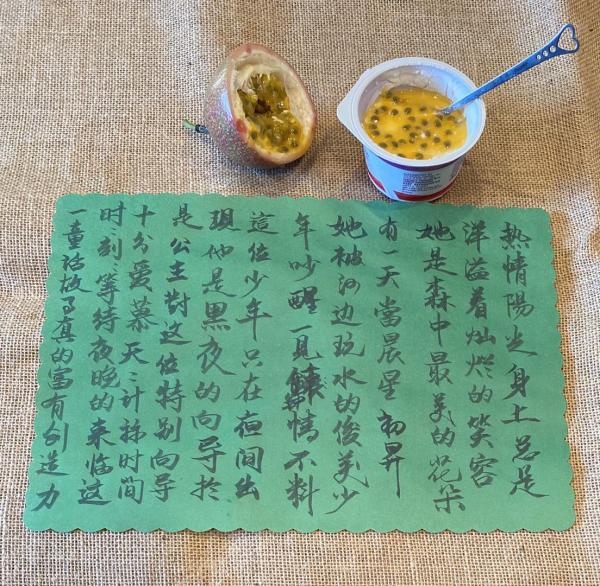 熱情陽光身上總是
洋溢着灿烂的笑容
她是森中最美的花朵
有一天當晨星初昇
她被河边玩水的俊美少
年吵醒一見鍾情不料
這位少年只在夜間出
現他是黑夜的向导於
是公主對这位特别向导
十分爱慕天〻計祘时間
时〻刻〻等待夜晚的来临这
一童話故了真的富有创造力